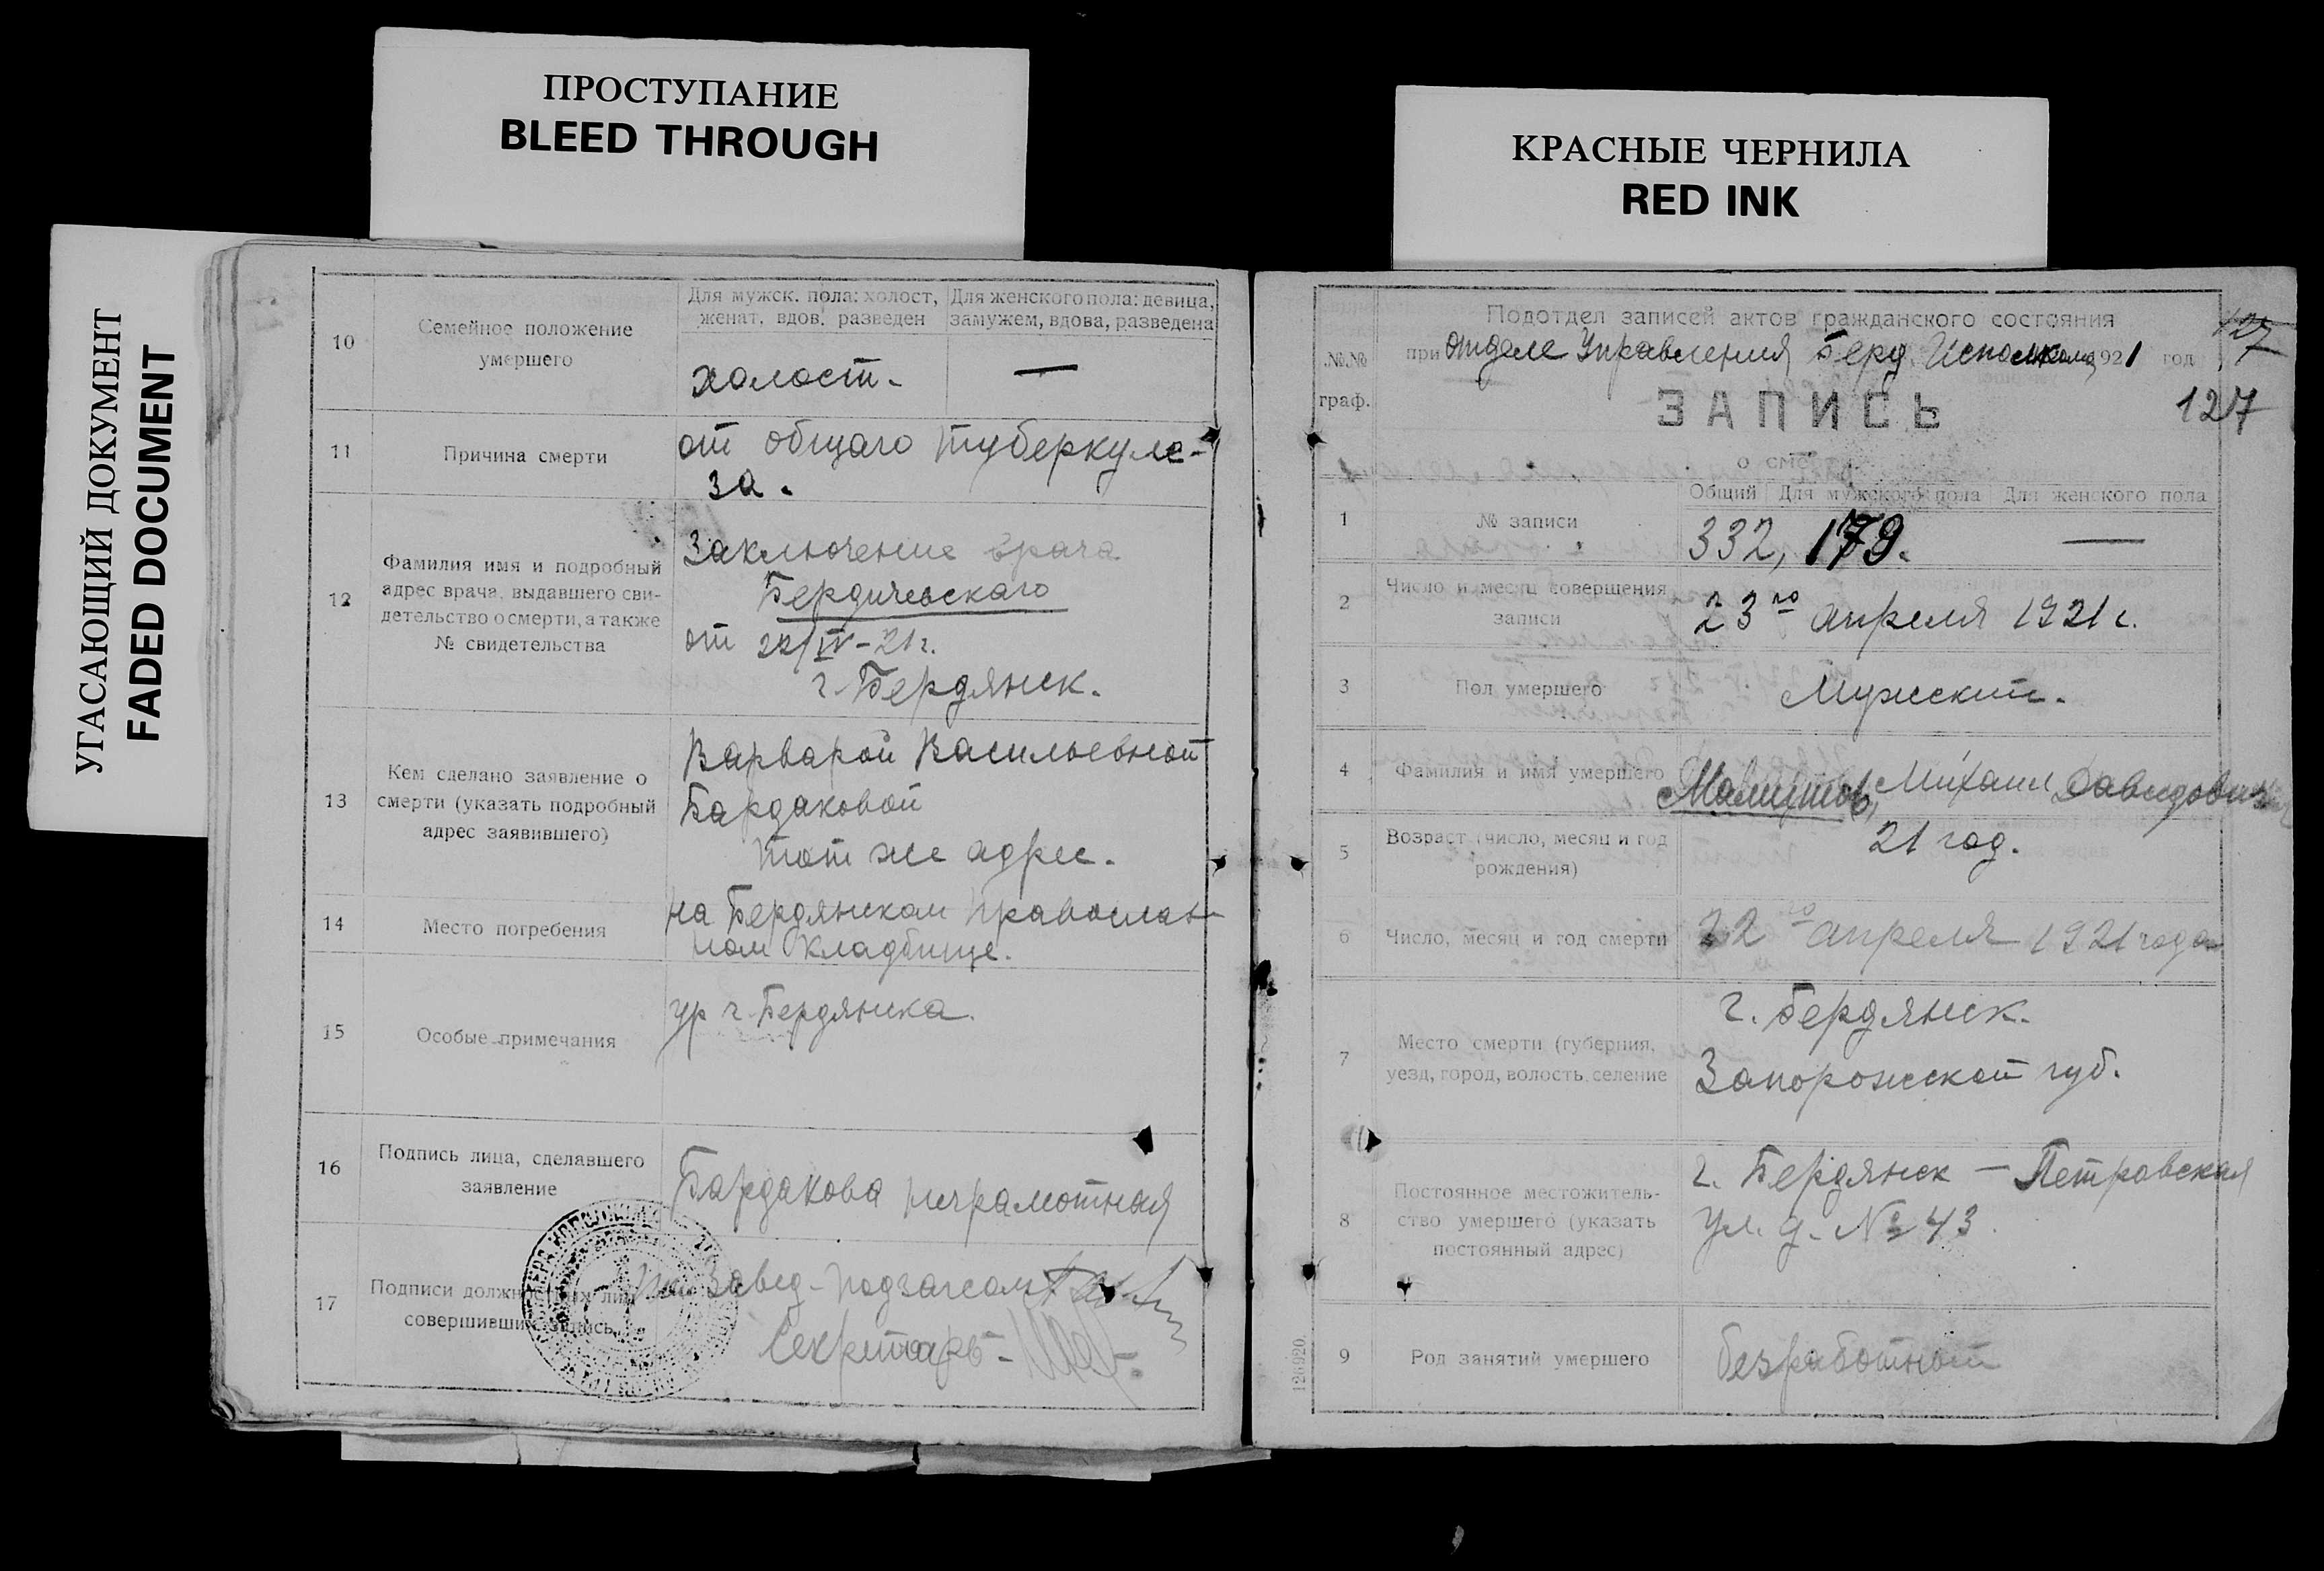 ПРОСТУПАНИЕ
BLEED THROUGH
КРАСНЫЕ ЧЕРНИЛА
RED INK
УГАСАЮЩИЙ ДОКУМЕНТ
FADED DOCUMENT
10
Семейное положение
умершего
Для мужск. пола: холост,
женат, вдов. разведен
Для женского пола: девица,
замужем, вдова, разведена
холост. —
11
Причина смерти
от общаго туберкуле-
за.
12
Фамилия имя и подробный
адрес врача, выдавшего сви-
детельство о смерти, а также
№ свидетельства
Заключение врача
Бердичевскаго
от 22/IV-21 г.
г. Бердянск.
13
Кем сделано заявление о
смерти (указать подробный
адрес заявившего)
Варварой Васильевной
Бардаковой
тот же адрес.
14
Место погребения
на Бердянском православ-
ном кладбище.
15
Особые примечания
ур г. Бердянска.
16
Подпись лица, сделавшего
заявление
Бардакова неграмотная
17
Подписи должностных лиц
совершивших запись
Завед. подзагсом
Секретарь -
Подотдел записей актов гражданского состояния
№№
граф.
при отделе Управления Берд. Исполкома 1921 год
127
127
ЗАПИСЬ
о смерти
Общий
Для мужского пола
Для женского пола
1
№ записи
332, 179. —
2
Число и месяц совершения
записи
23го апреля 1921 г.
3
Пол умершего
Мужской.
4
Фамилия и имя умершего
Михаил Давидович
5
Возраст (число, месяц и год
рождения)
21 год.
6
Число, месяц и год смерти
22го апреля 1921 года
7
Место смерти (губерния,
уезд, город, волость, селение
г. Бердянск.
Запорожской губ.
8
Постоянное местожитель-
ство умершего (указать
постоянный адрес)
г. Бердянск — Петровская
ул. д. № 43.
9
Род занятий умершего
безработный